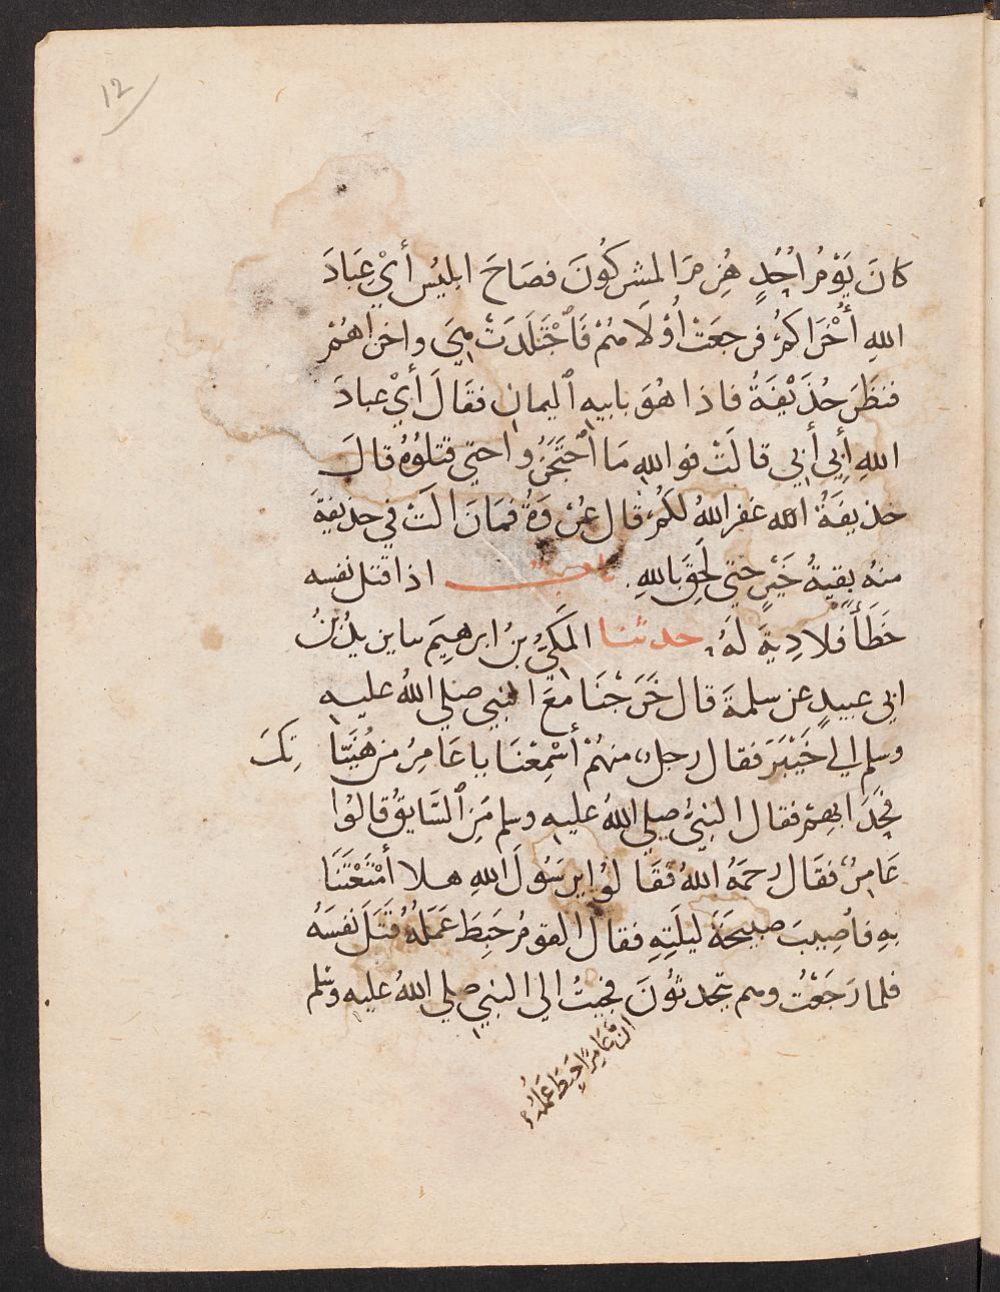 12
كَانَ يَوْمُ اُحُدٍ هُزِمَ المشركُونَ فصَاحَ ابليسُ أيْ عِبَادَ
اللهِ أُخْرَاكُمْ فرجعَتْ اُوْلَاهُمْ فَاجْتَلَدَتْ هِيَ واخراهُمْ
فنظَرَ حُذَيْفَةُ فاذا هُوَ بابيهِ اليمانِ فقَالَ أيْ عبادَ
اللهِ أبِي أبِي قالَتْ فواللهِ مَا احْتَجَزُوا حتي قتلُوْهُ قالَ
حذيفَةُ الله غفر اللهُ لكُمْ قال عُرْوَةُ فمَازَالَتْ في حذيفةَ
منهُ بقيةُ خَيْرٍ حتي لَحِقَ باللهِ باب اذا قتل نفسه
خَطَأً فلا دِيةَ لَهُ حدثنا المَكِّيُّ بنُ ابرهيمَ سا يزيدُ بنُ
ابي عبيدٍ عن سلمةَ قال خَرَجْنَا مَعَ النبي صلي اللهُ عليه
وسلم الي خَيْبَرَ فقال رجلٌ منهُمْ أسْمِعْنَا يا عَامِرُ من هُنَيَّا تِكَ
فحَدَا بهِمْ فقال النبيُّ صلي اللهُ عليه وسلم مَنِ السَّايقُ قالُوْا
عَامِرٌ فقال رحمَهُ اللهُ فقَالُوْا يرسُولَ اللهِ هلا أمْتَعْتَنَا
بهِ فأُصِيبَ صبيحَةَ ليلَتِهِ فقال القومُ حَبِطَ عَمَلُهُ قَتَلَ نفسَهُ
فلما رَجَعْتُ وهم يتحدثُوْنَ فجيتُ الي النبي صلي اللهُ عليه وسْلم
ان عَامِرًا حَبِطَ عَمَلُهُ